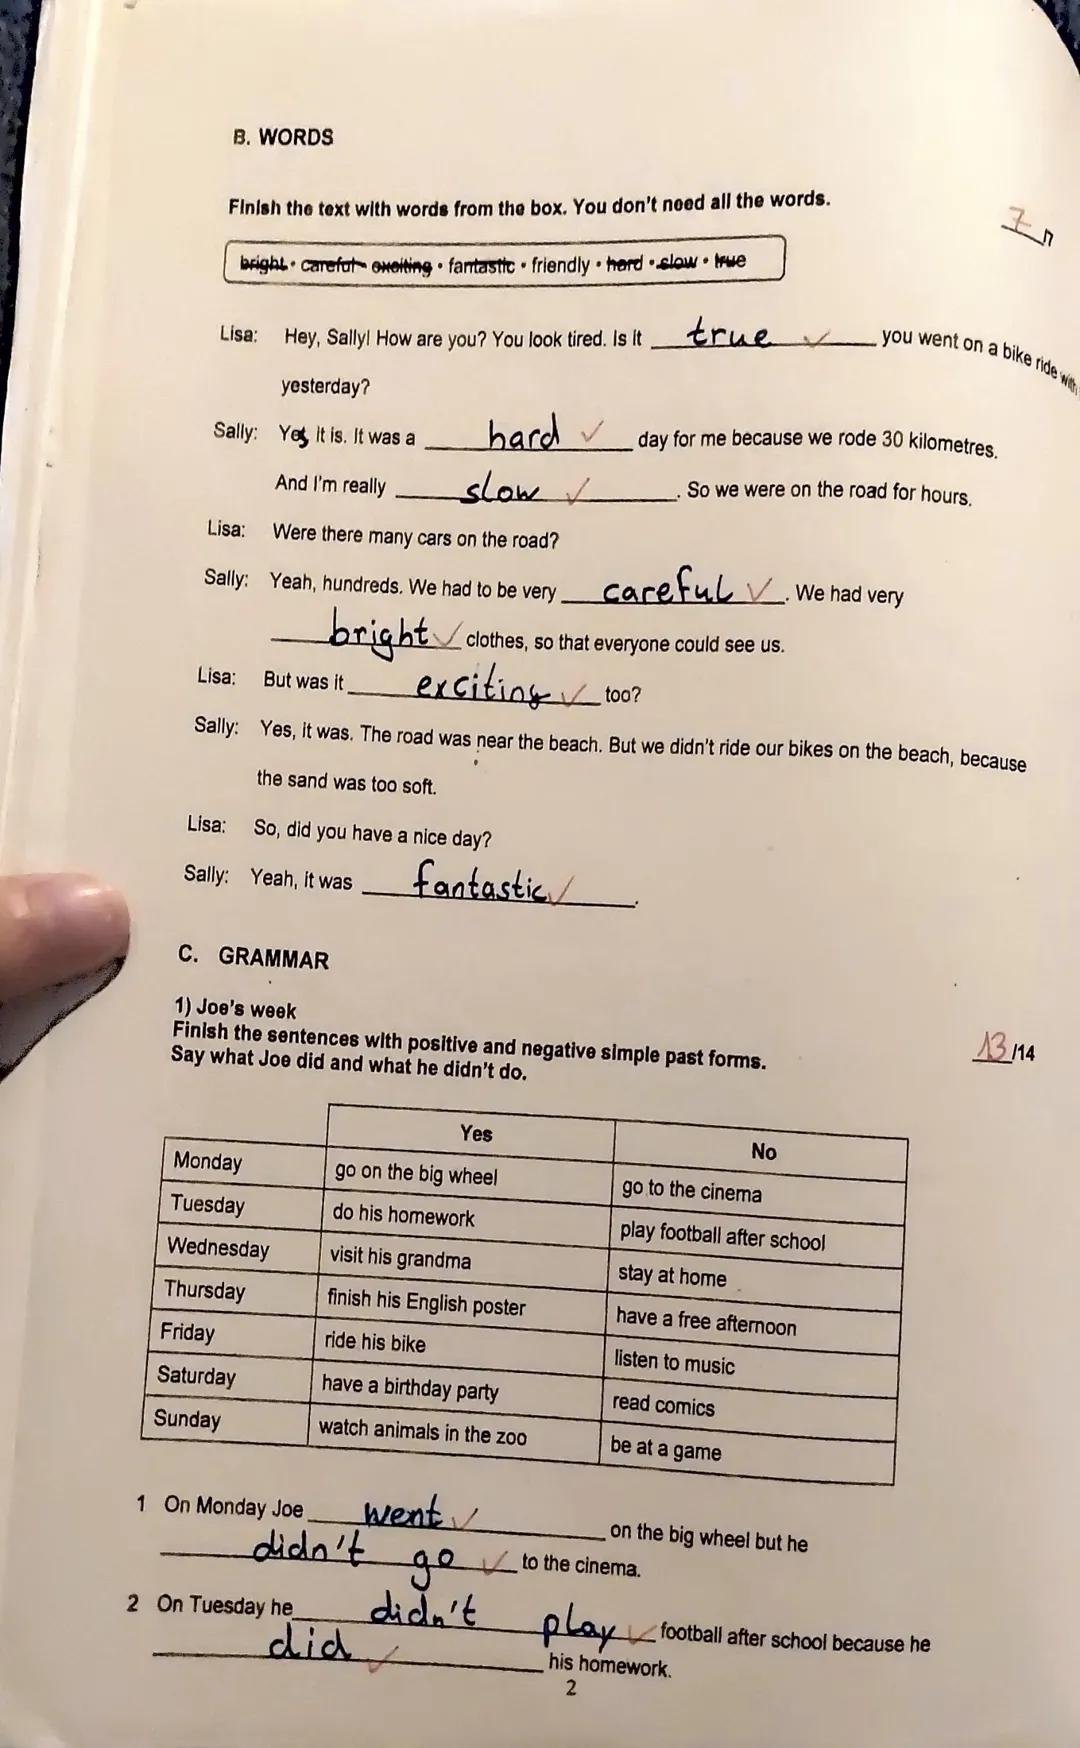 B. WORDS
Finish the text with words from the box. You don't need all the words.
7/7
bright • careful • exciting • fantastic • friendly • hard • slow • true
Lisa: Hey, Sally! How are you? You look tired. Is it true you went on a bike ride with
yesterday?
Sally: Yes, it is. It was a hard day for me because we rode 30 kilometres.
And I'm really slow. So we were on the road for hours.
Lisa: Were there many cars on the road?
Sally: Yeah, hundreds. We had to be very careful. We had very
bright clothes, so that everyone could see us.
Lisa: But was it exciting too?
Sally: Yes, it was. The road was near the beach. But we didn't ride our bikes on the beach, because
the sand was too soft.
Lisa: So, did you have a nice day?
Sally: Yeah, it was fantastic.
C. GRAMMAR
1) Joe's week
Finish the sentences with positive and negative simple past forms.
Say what Joe did and what he didn't do.
13/14
Yes No
Monday go on the big wheel go to the cinema
Tuesday do his homework play football after school
Wednesday visit his grandma stay at home
Thursday finish his English poster have a free afternoon
Friday ride his bike listen to music
Saturday have a birthday party read comics
Sunday watch animals in the zoo be at a game
1 On Monday Joe went on the big wheel but he
didn't go to the cinema.
2 On Tuesday he didn't play football after school because he
did his homework.
2